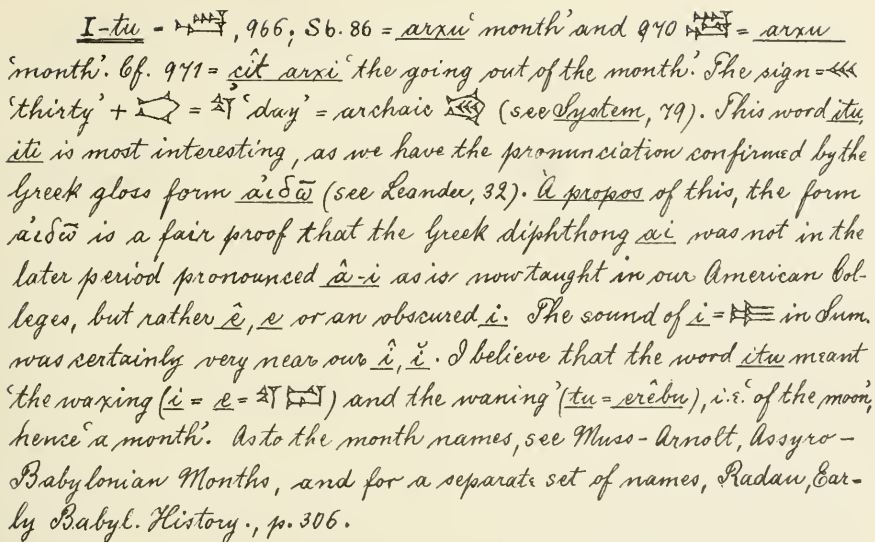 I-tu - 𒌗, 966; Sb. 86 = arxu 'month' and 970 𒌚 = arxu
'month'. Cf. 971 = cît arxi 'the going out of the month'. The sign = 𒌍
'thirty' + = 𒌓 'day' = archaic (see System, 79). This word itu,
iti is most interesting, as we have the pronunciation confirmed by the
Greek gloss form ἀιδω̄ (see Leander, 32). À propos of this, the form
ἀιδω̄ is a fair proof that the Greek diphthong αι was not in the
later period pronounced â-i as is now taught in our American Col-
leges, but rather ê, e or an obscured i. The sound of i = 𒄿 in Sum.
was certainly very near our î, ĭ. I believe that the word itu meant
'the waxing (i = e = 𒌓𒁺) and the waning' (tu = erêbu), i.e. 'of the moon',
hence 'a month'. As to the month names, see Muss-Arnolt, Assyro-
Babylonian Months, and for a separate set of names, Radau, Ear-
ly Babyl. History., p. 306.